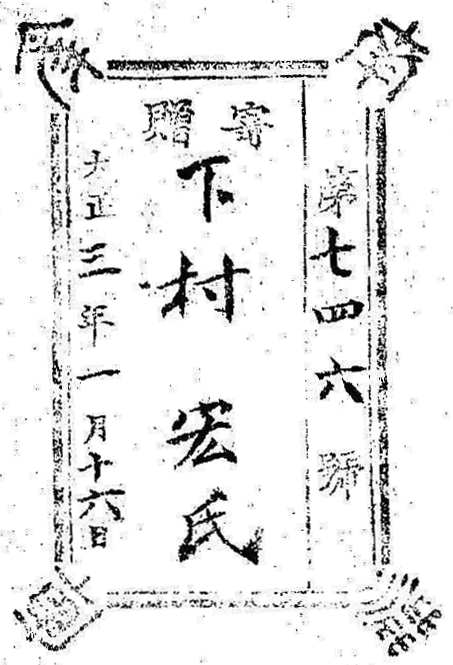 第七四六號
寄贈
下村宏氏
大正三年一月十六日